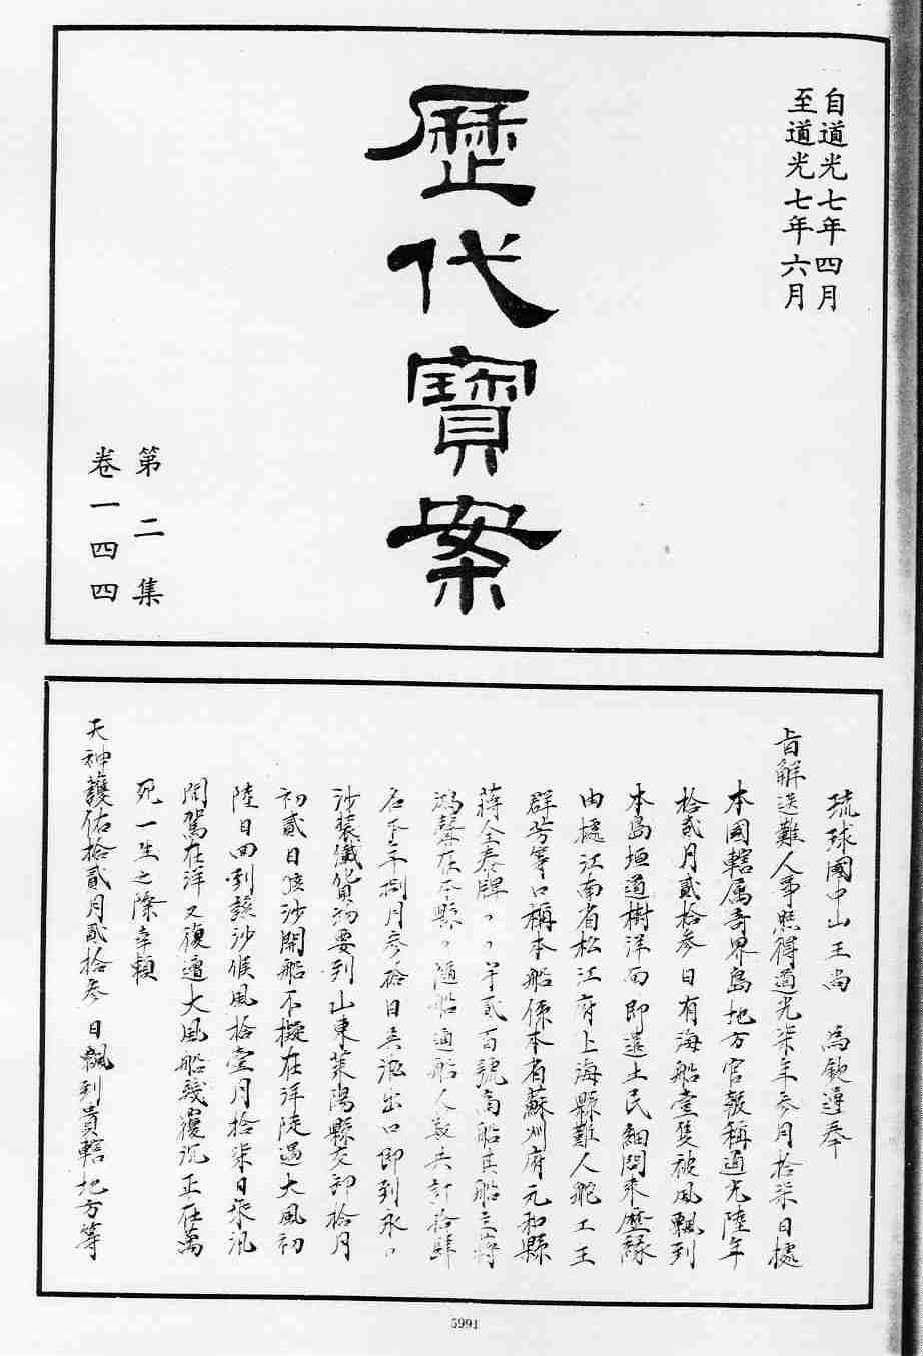 自道光七年四月
至道光七年六月
歷代寶案
第二集
卷一四四
琉球國中山王尚 為欽遵奉
旨解送難人事照得道光柒年参月拾柒日據
本國轄属奇界島地方官報稱道光陸年
拾貳月貳拾参日有海船壹隻被風飄到
本島垣道樹洋面即遣土民細問來歷緣
由據江南省松江府上海縣難人舵工王
群芳等口稱本船係本省蘇州府元和縣
蔣全泰牌々字貳百號商船其船主蔣
鴻馨在本縣々隨船通船人数共計拾肆
名本年捌月参拾日吴淞出口即到永々
沙装儎貨物要到山東莱陽縣交卸拾月
初貳日該沙開船不擬在洋陡遇大風初
陸日回到該沙候風拾壹月拾柒日乘汛
開駕在洋又復遭大風船幾覆沉正在萬
死一生之際幸賴
天神護佑拾貳月貳拾参日飄到貴轄地方等
5991